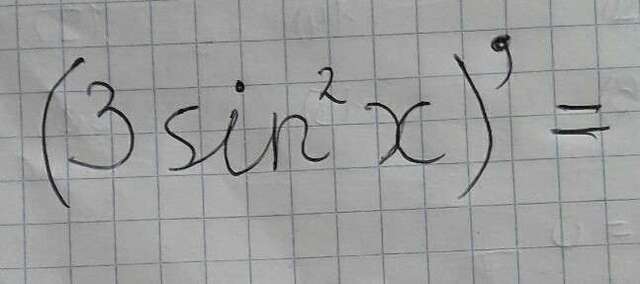 (3 sin² x)' =